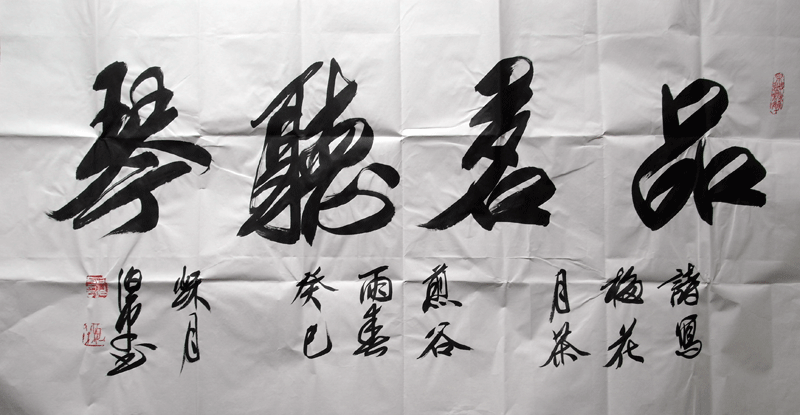 品茗聽琴
詩寫
梅花
月茶
煎谷
雨春
癸巳
秌月